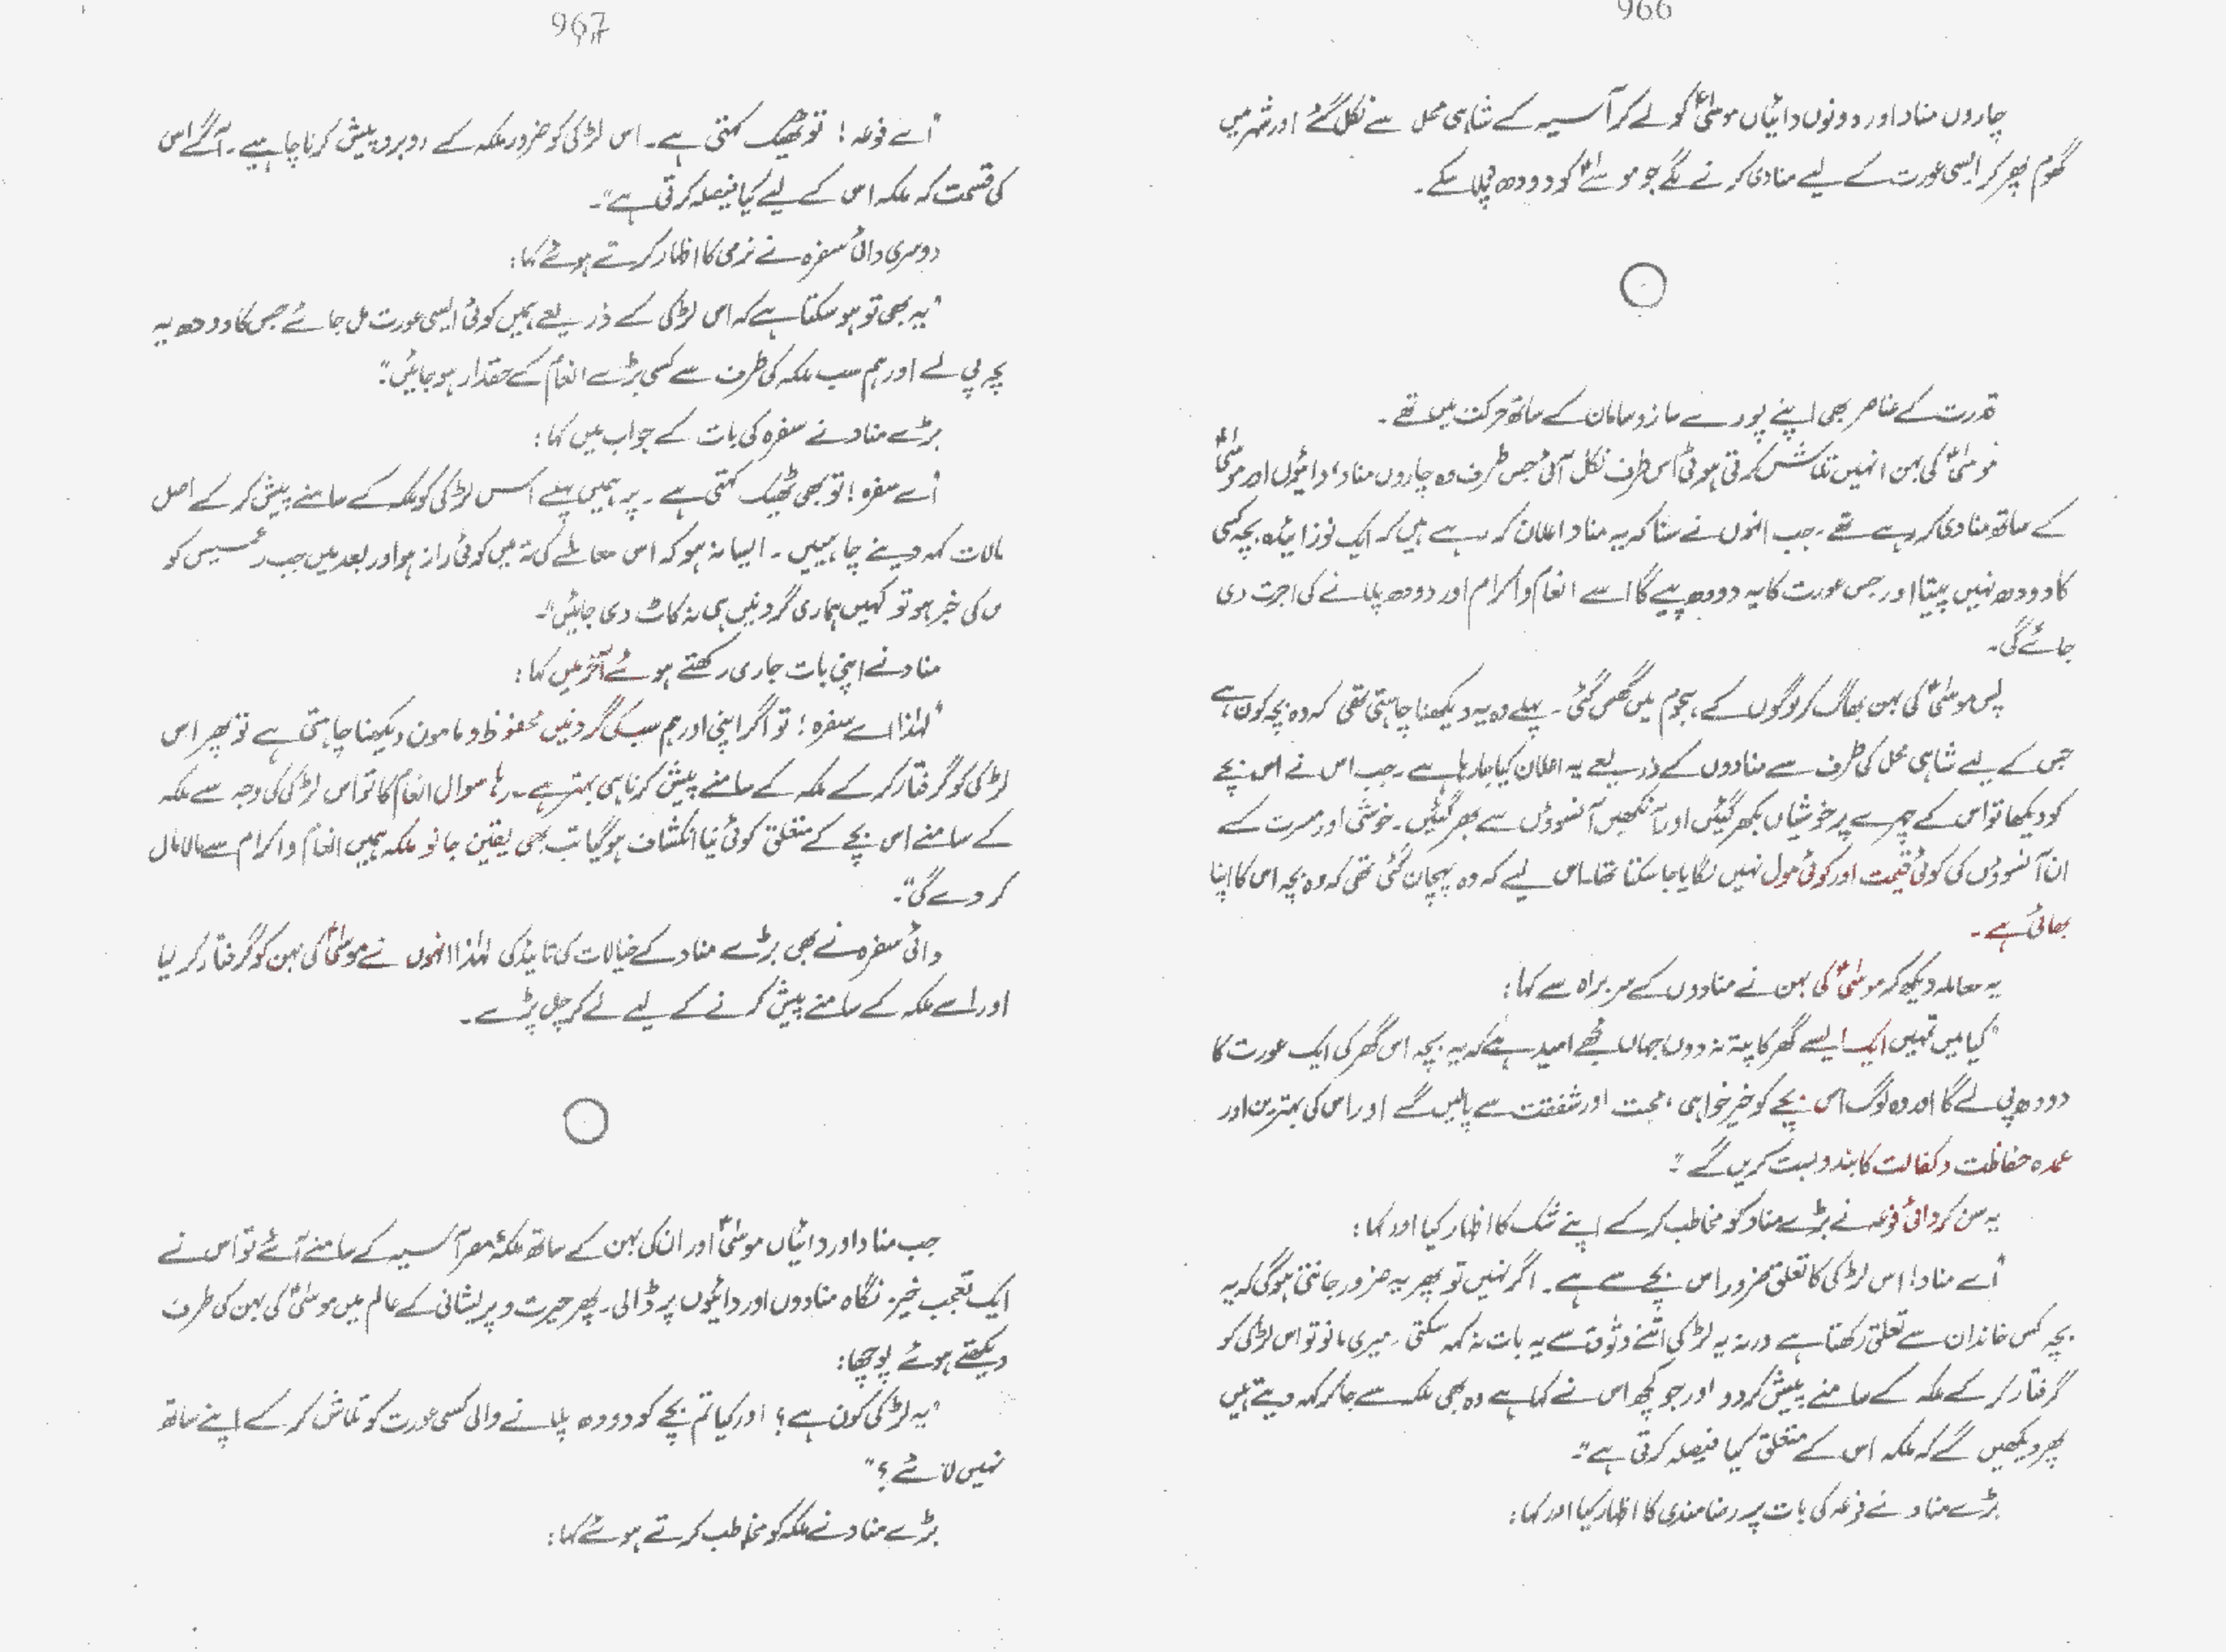 966
چاروں مناد اور دونوں دائیاں موسیٰؑ کو لے کر آسیہ کے شاہی محل سے نکل گئے اور شہر میں
گھوم پھر کر ایسی عورت کے لیے منادی کرنے لگے جو موسیٰؑ کو دودھ پلا سکے۔
قدرت کے عناصر بھی اپنے پورے ساز و سامان کے ساتھ حرکت میں تھے۔
موسیٰؑ کی بہن انہیں تلاش کرتی ہوئی اس طرف نکل آئی جس طرف وہ چاروں مناد، دائیوں اور موسیٰؑ
کے ساتھ منادی کر رہے تھے۔ جب انہوں نے سنا کہ یہ مناد اعلان کر رہے ہیں کہ ایک نوزائیدہ بچہ کسی
کا دودھ نہیں پیتا اور جس عورت کا یہ دودھ پیے گا اسے انعام و اکرام اور دودھ پلانے کی اجرت دی
جائے گی۔
پس موسیٰؑ کی بہن بھاگ کر لوگوں کے ہجوم میں گھس گئی۔ پہلے وہ یہ دیکھنا چاہتی تھی کہ وہ بچہ کون ہے
جس کے لیے شاہی محل کی طرف سے منادوں کے ذریعے یہ اعلان کیا جا رہا ہے۔ جب اس نے اس بچے
کو دیکھا تو اس کے چہرے پر خوشیاں بکھر گئیں اور آنکھیں آنسوؤں سے بھر گئیں۔ خوشی اور مسرت کے
ان آنسوؤں کی کوئی قیمت اور کوئی مول نہیں لگایا جا سکتا تھا۔ اس لیے کہ وہ پہچان گئی تھی کہ وہ بچہ اس کا اپنا
بھائی ہے۔
یہ معاملہ دیکھ کر موسیٰؑ کی بہن نے منادوں کے سربراہ سے کہا:
"کیا میں تمہیں ایک ایسے گھر کا پتہ نہ دوں جہاں مجھے امید ہے کہ یہ بچہ اس گھر کی ایک عورت کا
دودھ پی لے گا اور وہ لوگ اس بچے کو خیر خواہی، محبت اور شفقت سے پالیں گے اور اس کی بہترین اور
عمدہ حفاظت و کفالت کا بندوبست کریں گے۔"
یہ سن کر دائی فوعہ نے بڑے مناد کو مخاطب کر کے اپنے شک کا اظہار کیا اور کہا:
"اے مناد! اس لڑکی کا تعلق ضرور اس بچے سے ہے۔ اگر نہیں تو پھر یہ ضرور جانتی ہو گی کہ یہ
بچہ کس خاندان سے تعلق رکھتا ہے ورنہ یہ لڑکی اتنے وثوق سے یہ بات نہ کہہ سکتی۔ میری مانو تو اس لڑکی کو
گرفتار کر کے ملکہ کے سامنے پیش کر دو اور جو کچھ اس نے کہا ہے وہ بھی ملکہ سے جا کر کہہ دیتے ہیں
پھر دیکھیں گے کہ ملکہ اس کے متعلق کیا فیصلہ کرتی ہے"۔
بڑے مناد نے فوعہ کی بات پر رضا مندی کا اظہار کیا اور کہا:
967
"اے فوعہ! تو ٹھیک کہتی ہے۔ اس لڑکی کو ضرور ملکہ کے روبرو پیش کرنا چاہیے۔ آگے اس
کی قسمت کہ ملکہ اس کے لیے کیا فیصلہ کرتی ہے"۔
دوسری دائی سفرہ نے نرمی کا اظہار کرتے ہوئے کہا:
"یہ بھی تو ہو سکتا ہے کہ اس لڑکی کے ذریعے ہمیں کوئی ایسی عورت مل جائے جس کا دودھ یہ
بچہ پی لے اور ہم سب ملکہ کی طرف سے کسی بڑے انعام کے حقدار ہو جائیں"۔
بڑے مناد نے سفرہ کی بات کے جواب میں کہا:
"اے سفرہ! تو بھی ٹھیک کہتی ہے۔ پر ہمیں پہلے اس لڑکی کو ملکہ کے سامنے پیش کر کے اصل
حالات کہہ دینے چاہییں۔ ایسا نہ ہو کہ اس معاملے کی تہ میں کوئی راز ہو اور بعد میں جب رعمسیس کو
س کی خبر ہو تو کہیں ہماری گردنیں ہی نہ کاٹ دی جائیں"۔
مناد نے اپنی بات جاری رکھتے ہوئے آخر میں کہا:
"لہٰذا اے سفرہ! تو اگر اپنی اور ہم سب کی گردنیں محفوظ و مامون دیکھنا چاہتی ہے تو پھر اس
لڑکی کو گرفتار کر کے ملکہ کے سامنے پیش کرنا ہی بہتر ہے۔ رہا سوال انعام کا تو اس لڑکی کی وجہ سے ملکہ
کے سامنے اس بچے کے متعلق کوئی نیا انکشاف ہو گیا تب بھی یقین جانو ملکہ ہمیں انعام و اکرام سے مالا مال
کر دے گی"۔
دائی سفرہ نے بھی بڑے مناد کے خیالات کی تائید کی لہٰذا انہوں نے موسیٰؑ کی بہن کو گرفتار کر لیا
اور اسے ملکہ کے سامنے پیش کرنے کے لیے لے کر چل پڑے۔
جب مناد اور دائیاں موسیٰؑ اور ان کی بہن کے ساتھ ملکۂ مصر آسیہ کے سامنے آئے تو اس نے
ایک تعجب خیز نگاہ منادوں اور دائیوں پر ڈالی۔ پھر حیرت و پریشانی کے عالم میں موسیٰؑ کی بہن کی طرف
دیکھتے ہوئے پوچھا:
"یہ لڑکی کون ہے؟ اور کیا تم بچے کو دودھ پلانے والی کسی عورت کو تلاش کر کے اپنے ساتھ
نہیں لائے؟"
بڑے مناد نے ملکہ کو مخاطب کرتے ہوئے کہا: